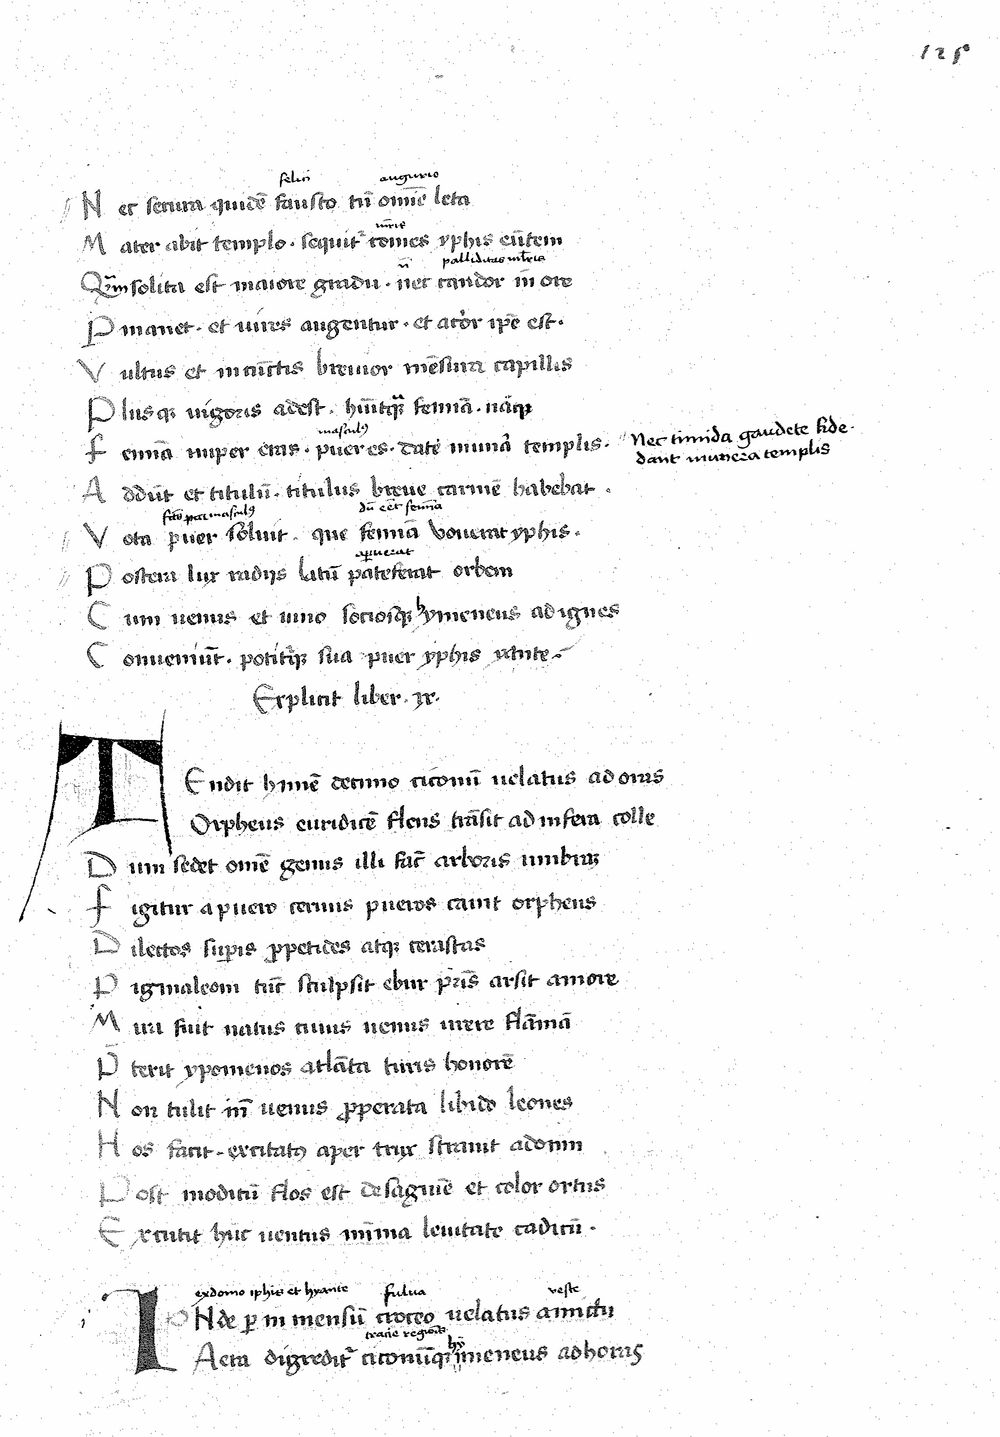 125
felici augurio
Nec secura quidē fausto tn̄ omīe leta
Mater abit templo . sequit᷑ comes yphis eūtem
palliditas
Qm̄ solita est maiore gradu . nec candor in ore
Pmanet . et uires augentur . et acior ipē est .
Vultus et incūctis breuior mēsura capillis
Plusqꝫ uigoris adest . femīa . nāqꝫ
masculꝰ
Femīa nuper eras . puer es . date munā templis . Nec timida gaudete fide .
dant munera templis
Addūt et titulū . titulus breue carmē habebat .
dū eēt femīa
Vota puer soluit . que femīā vouerat yphis .
aperuerat
Postera lux radijs latū patefecerat orbem
Cum uenus et iuno sociosqꝫ hymeneus ad ignes
Conueniūt . potitqꝫ sua puer yphis yante .
Explicit liber . ix .
TEndit himē decimo ciconū uelatus ad oras
Orpheus euridicē flens trāsit ad infera colle
Dum sedet omē genus illi fac̄ arboris umbrā
Figitur a puero ceruus pueros canit orpheus
Dilectos suꝑis ꝓpetides atqꝫ cerastas
Pigmaleoni tūc sculpsit ebur pris arsit amore
Mirra fuit natus cuius uenus urere flāmā
Pterit ypomenos atlāta turis honorē
Non tulit uenus ꝓperata libido leones
Hos facit . excitatꝰ aper trux strauit adonin
Post modicū flos est de sāguīe et color ortus
Excutit hūc uentus nimia leuitate caducū .
ex domo iphis et hyante fulua veste
INde ꝑ inmensū croceo uelatus amictu
tracie regionis
Aera digredit᷑ ciconūqꝫ hymeneus ad horas